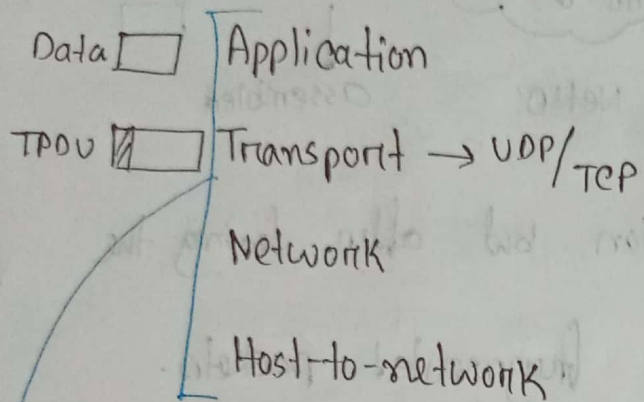 Data Application
TPDU Transport → UDP/TCP
Network
Host-to-network